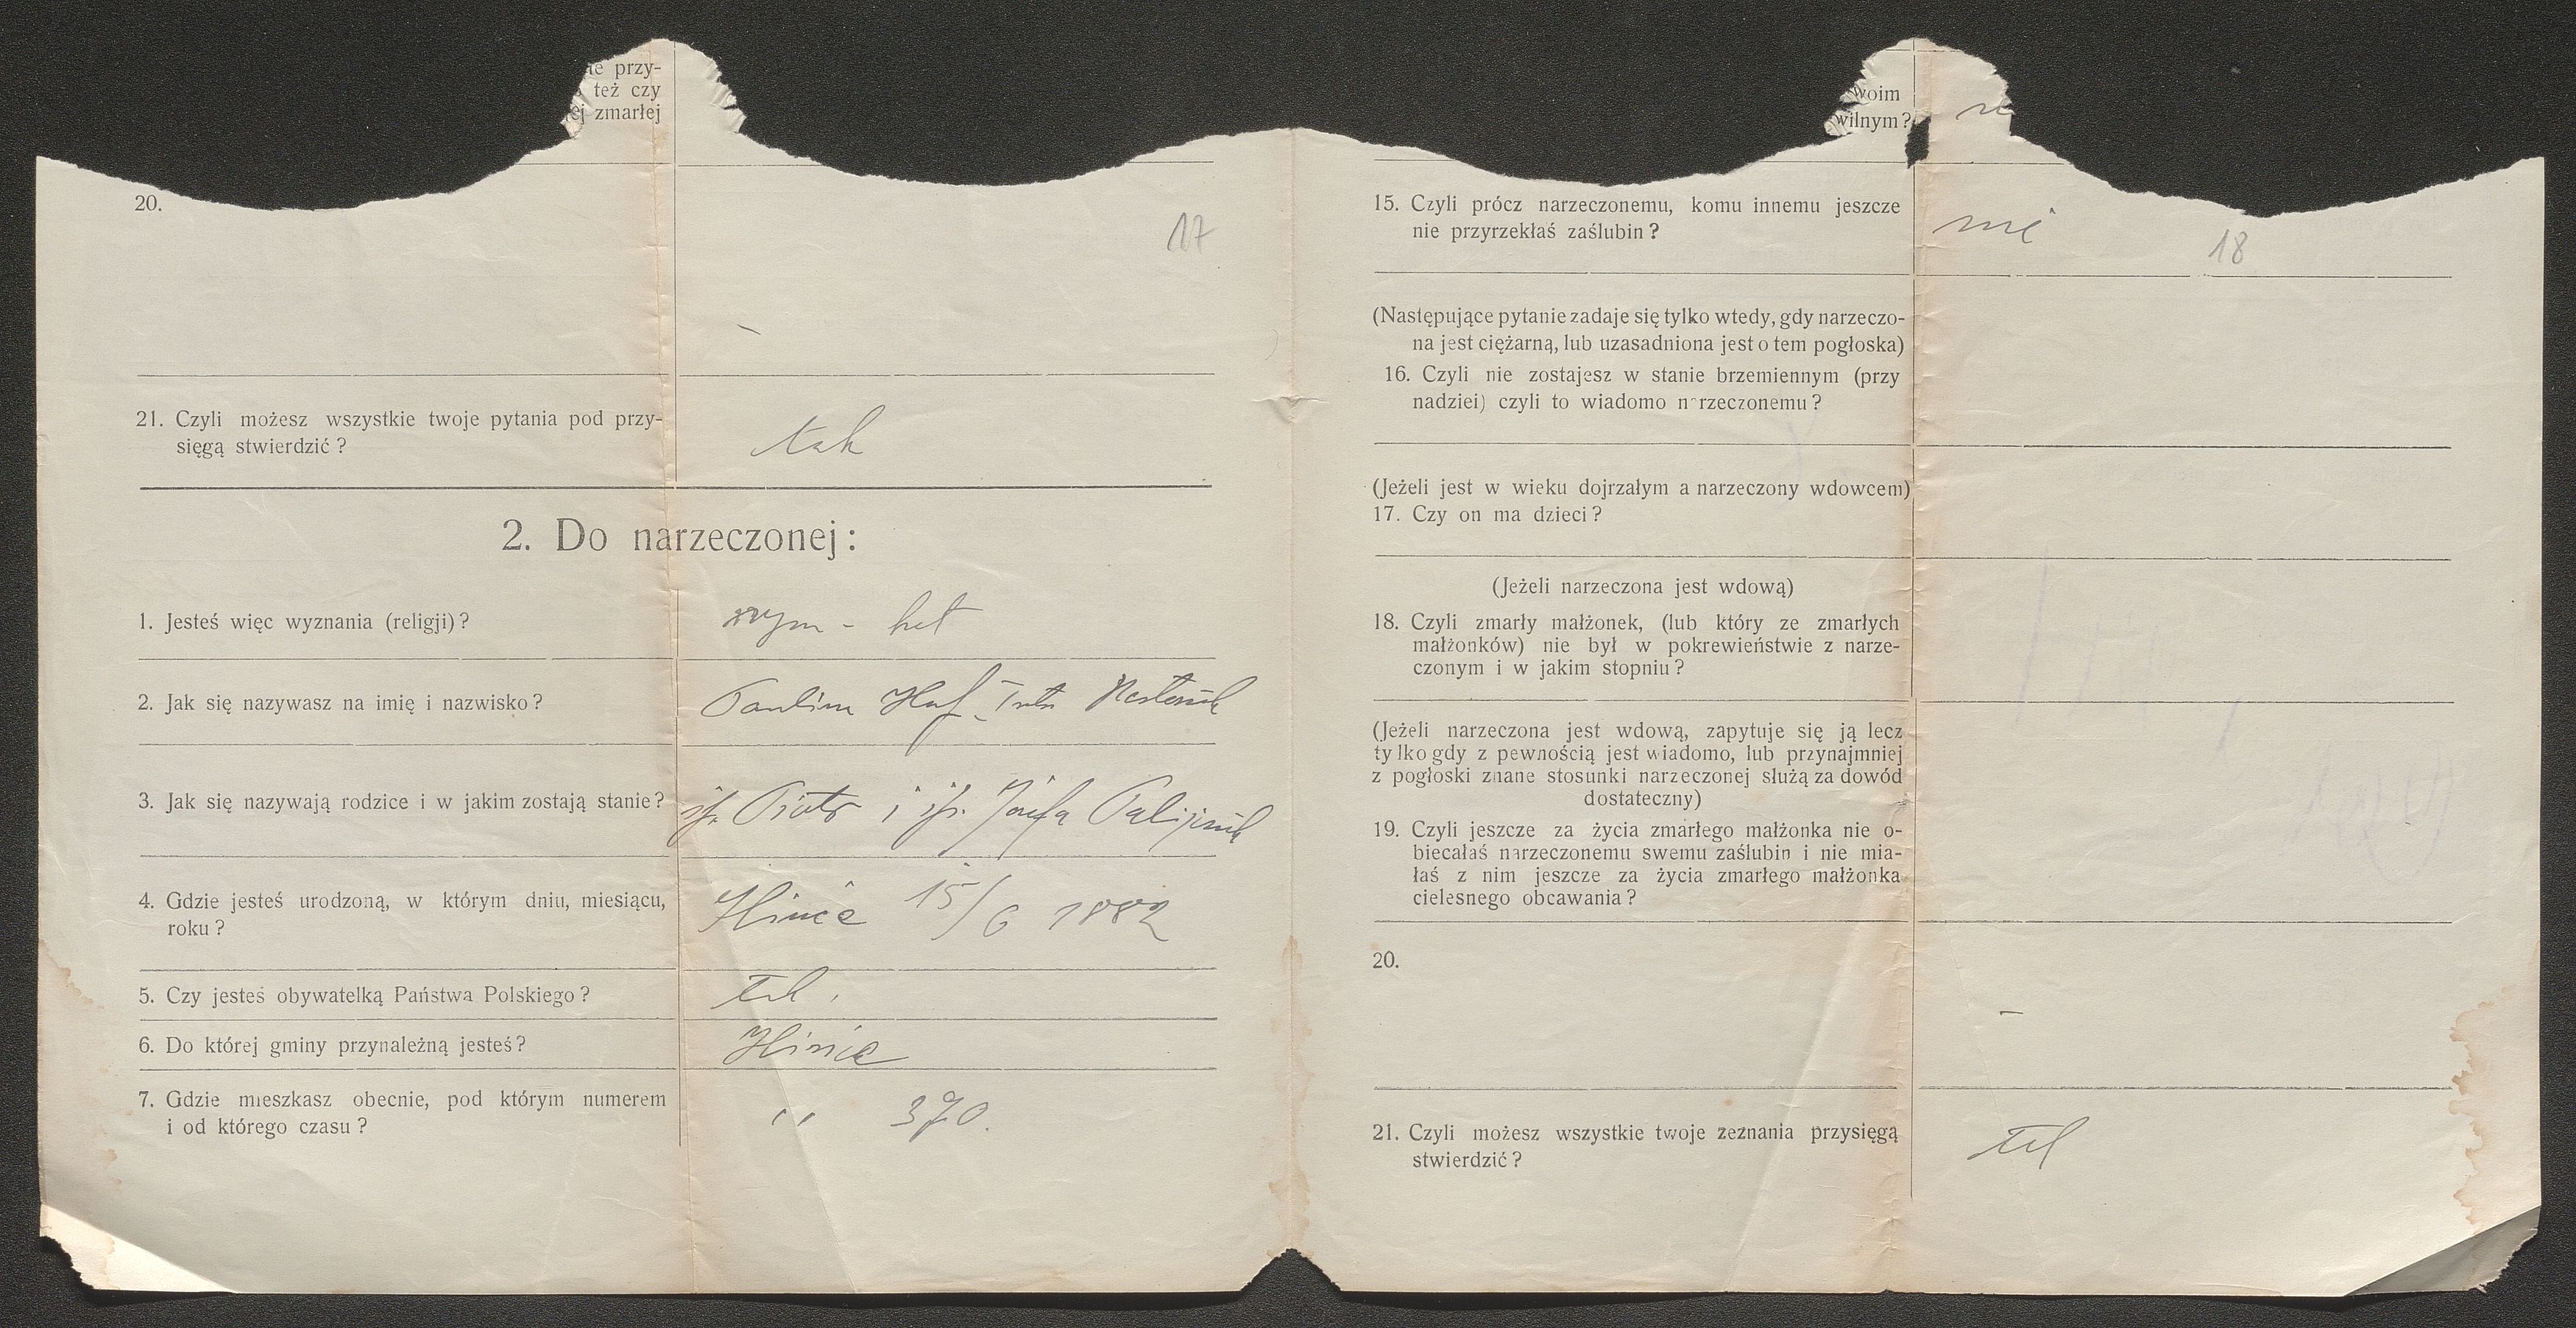 ie przy-
też czy
ej zmarłej
20.
17
21. Czyli możesz wszystkie twoje pytania pod przy-
sięgą stwierdzić ?
tak
2. Do narzeczonej :
1. Jesteś więc wyznania (religji) ?
rzym - kat
2. Jak się nazywasz na imię i nazwisko ?
Paulina
3. Jak się nazywają rodzice i w jakim zostają stanie ?
Piotr i Józefa
4. Gdzie jesteś urodzoną, w którym dniu, miesiącu,
roku ?
15/6 1882
5. Czy jesteś obywatelką Państwa Polskiego ?
tak
6. Do której gminy przynależną jesteś ?
7. Gdzie mieszkasz obecnie, pod którym numerem
i od którego czasu ?
" 370.
woim
wilnym ?
15. Czyli prócz narzeczonemu, komu innemu jeszcze
nie przyrzekłaś zaślubin ?
nie
18
(Następujące pytanie zadaje się tylko wtedy, gdy narzeczo-
na jest ciężarną, lub uzasadniona jest o tem pogłoska)
16. Czyli nie zostajesz w stanie brzemiennym (przy
nadziei) czyli to wiadomo narzeczonemu ?
(Jeżeli jest w wieku dojrzałym a narzeczony wdowcem)
17. Czy on ma dzieci ?
(Jeżeli narzeczona jest wdową)
18. Czyli zmarły małżonek, (lub który ze zmarłych
małżonków) nie był w pokrewieństwie z narze-
czonym i w jakim stopniu ?
(Jeżeli narzeczona jest wdową, zapytuje się ją lecz
tylko gdy z pewnością jest wiadomo, lub przynajmniej
z pogłoski znane stosunki narzeczonej służą za dowód
dostateczny)
19. Czyli jeszcze za życia zmarłego małżonka nie o-
biecałaś narzeczonemu swemu zaślubin i nie mia-
łaś z nim jeszcze za życia zmarłego małżonka
cielesnego obcawania ?
20.
-
21. Czyli możesz wszystkie twoje zeznania przysięgą
stwierdzić ?
tak